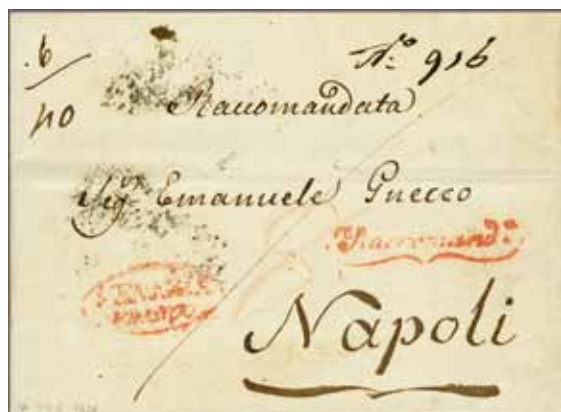 6
No 916
40
Raccomandata
Sigr Emanuele Gnecco
Raccomanda
Napoli